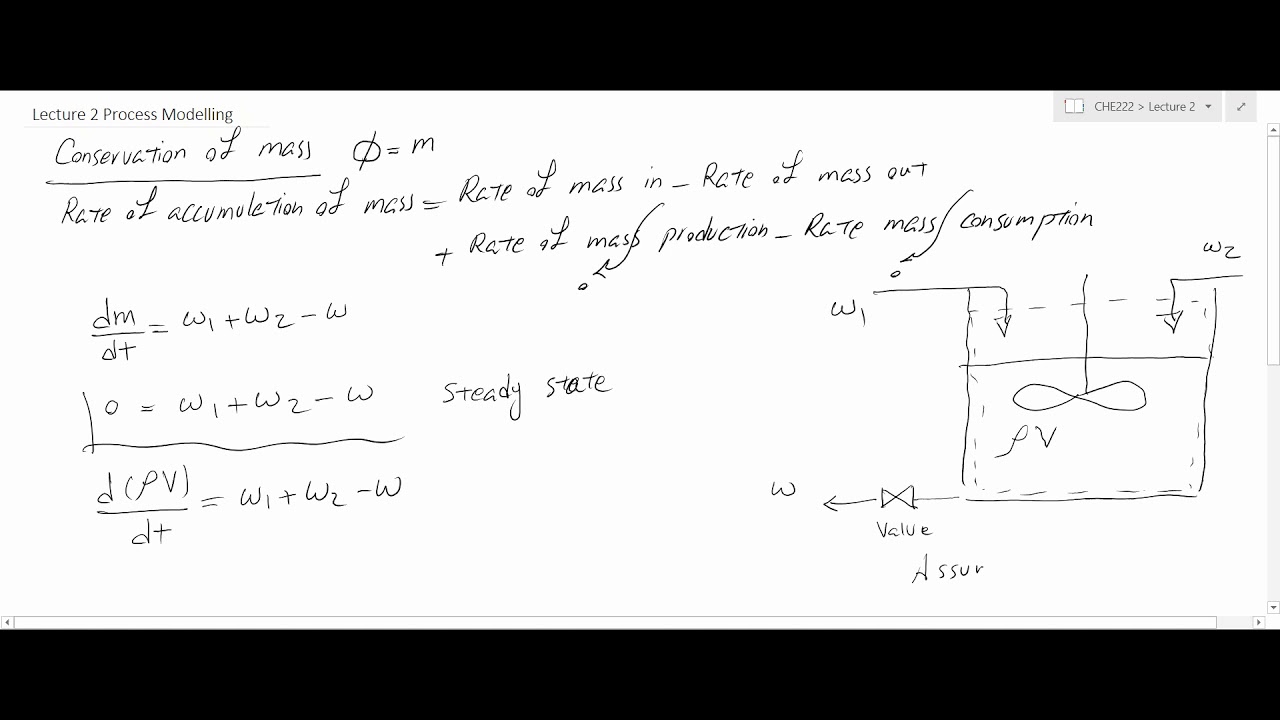 Lecture 2 Process Modelling
CHE222 > Lecture 2
Conservation of mass ϕ = m
Rate of accumulation of mass = Rate of mass in - Rate of mass out
+ Rate of mass production - Rate mass consumption
0
0
ω2
ω1
dm/dt = ω1 + ω2 - ω
0 = ω1 + ω2 - ω steady state
ρV
d(ρV)/dt = ω1 + ω2 - ω
ω
Value
Assur